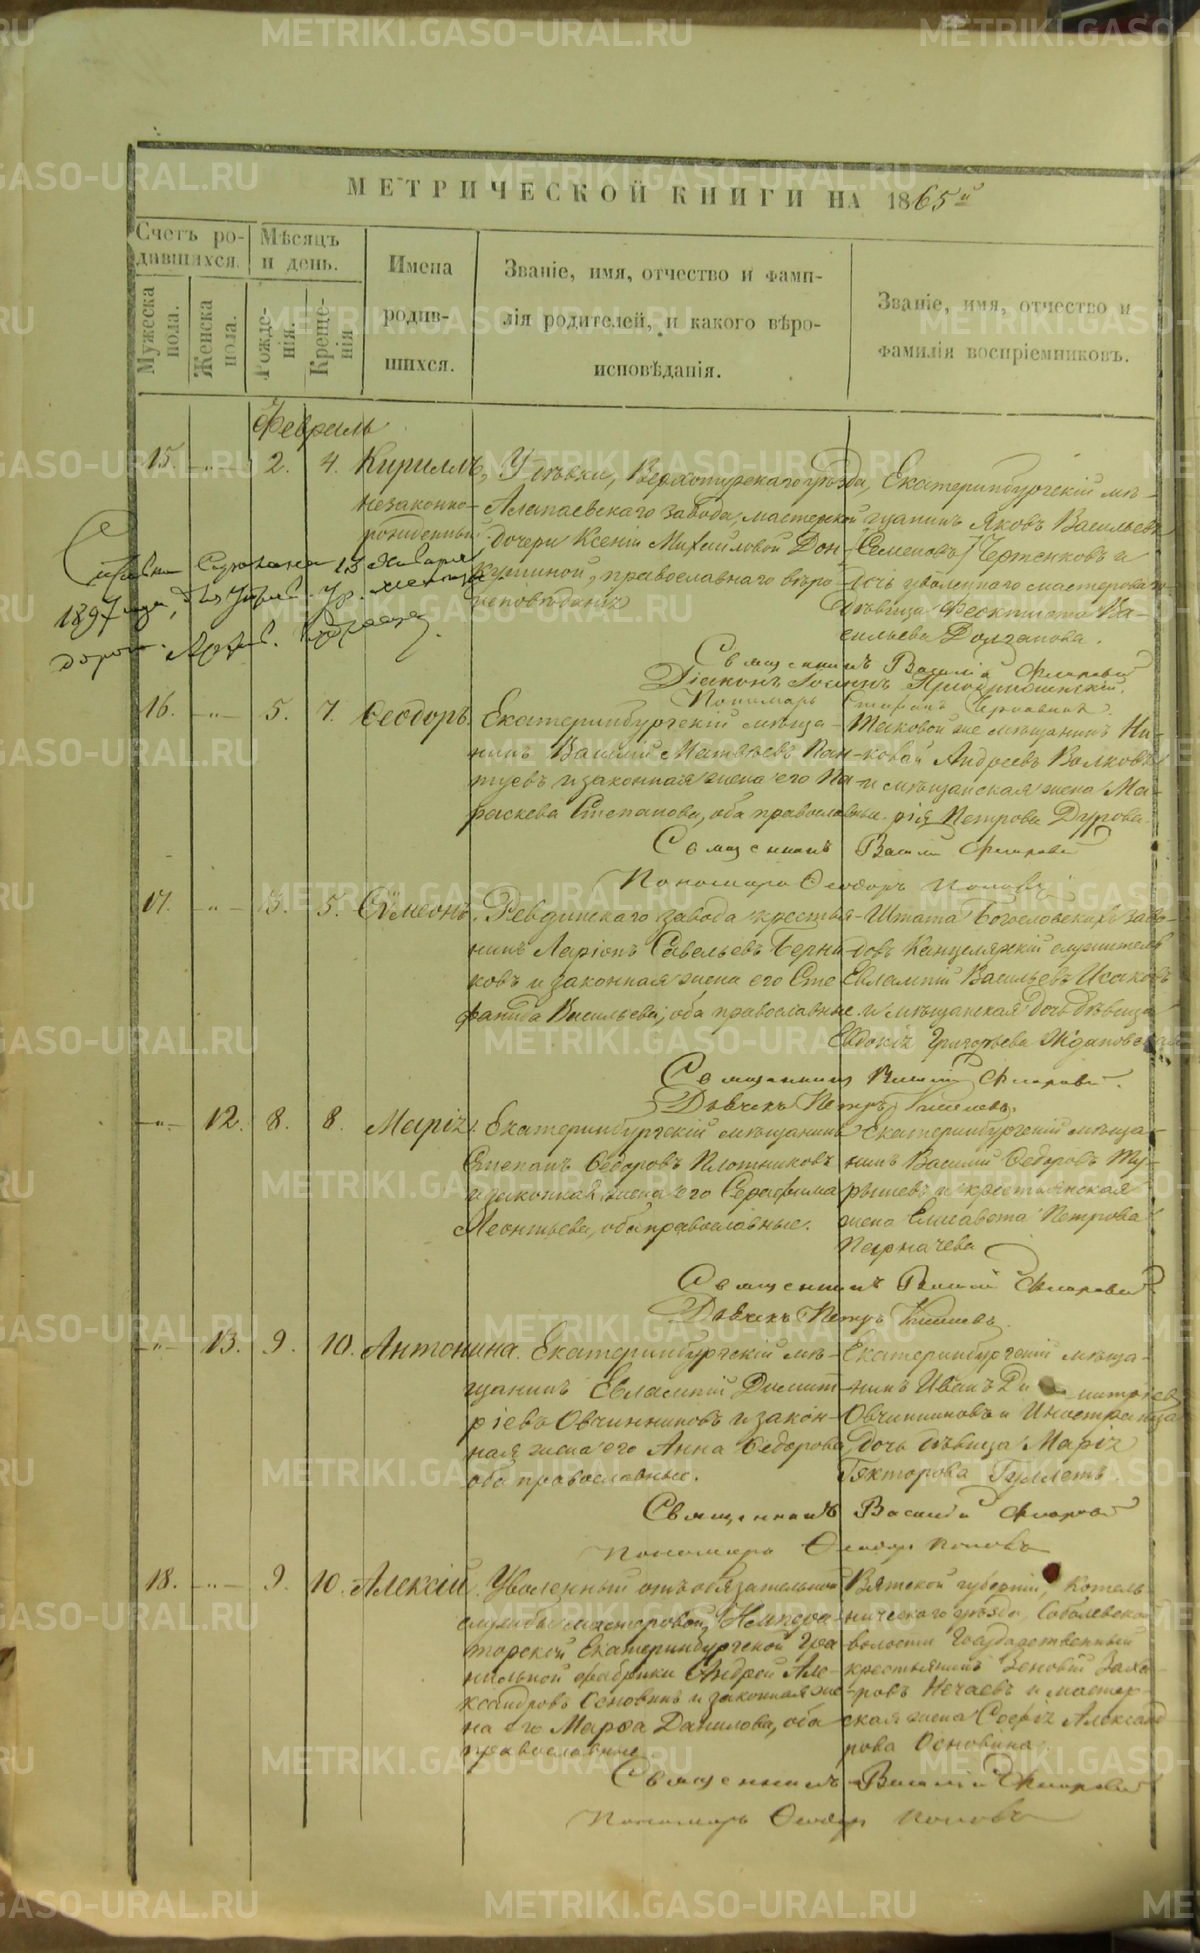 МЕТРИЧЕСКОЙ КНИГИ НА 1865й
Счетъ ро-
дившихся.
Мѣсяцъ
и день.
Мужеска
пола.
Женска
пола.
Рожде-
нія.
Креще-
нія
Имена
родив-
шихся.
Званіе, имя, отчество и фами-
лія родителей, и какого вѣро-
исповѣданія.
Званіе, имя, отчество и
фамилія воспріемниковъ.
Февраль
15. -„- 2. 4. Кириллъ,
незаконно-
рожденный
Верхотурскаго уѣзда,
Алапаевскаго завода, мастерской
дочери Ксеніи Михайловой Дон-
православнаго вѣро-
исповѣданія
Екатеринбургскій мѣ-
щанинъ Яковъ Васильевъ
Семеновъ Чертенковъ и
дочь уволеннаго мастероваго
дѣвица Феоктиста Ва-
сильева Долганова.
1897 года,
Священникъ Василій
Діаконъ Іоаннъ
Пономарь
16. -„- 5. 7. Ѳеодоръ.
Екатеринбургскій мѣща-
нинъ Василій Матвѣевъ Пан-
туевъ и законная жена его Па-
раскева Степанова, оба православные.
Таковой же мѣщанинъ Ни-
колай Андреевъ Волковъ
и мѣщанская жена Ма-
рія Петрова Дурова.
Священникъ Василій
Пономарь Ѳеодоръ Поповъ
17. -„- 3. 5. Сѵмеонъ.
Ревдинскаго завода крестья-
нинъ Ларіонъ Савельевъ Берни-
ковъ и законная жена его Сте-
фанида Васильева, оба православные.
Штата Богословскихъ заво-
довъ Канцелярскій служитель
Евлампій Васильевъ Исаковъ
и мѣщанская дочь дѣвица
Евдокія Григорьева Ждановская
Священникъ Василій
Дьячекъ Петръ Киселевъ.
-„- 12. 8. 8. Марія.
Екатеринбургскій мѣщанинъ
Степанъ Ѳедоровъ Плотниковъ
и законная жена его Серафима
Леонтьева, оба православные.
Екатеринбургскій мѣща-
нинъ Василій Ѳедоровъ
и крестьянская
жена Елисавета Петрова
Священникъ Василій
Дьячекъ Петръ Киселевъ
-„- 13. 9. 10. Антонина.
Екатеринбургскій мѣ-
щанинъ Евлампій Димит-
ріевъ Овчинниковъ и закон-
ная жена его Анна Ѳедорова
оба православные.
Екатеринбургскій мѣща-
нинъ Иванъ Ди митріев
Овчинниковъ и Иностранца
дочь дѣвица Марія
Гекторова Гуллетъ.
Священникъ Василій
Пономарь Ѳеодоръ Поповъ
18. -„- 9. 10. Алексій.
Уволенный отъ обязательной
службы мастеровой Импера-
торской Екатеринбургской Гра-
нильной фабрики Андрей Але-
ксандровъ Основинъ и законная же-
на его Марѳа Данилова, оба
православные
Вятской губерніи, Котель-
ническаго уѣзда, Соболевской
волости Государственный
крестьянинъ Зеновій Заха-
ровъ Нечаевъ и мастер-
ская жена Софія Александ-
рова Основина.
Священникъ Василій
Пономарь Ѳеодоръ Поповъ